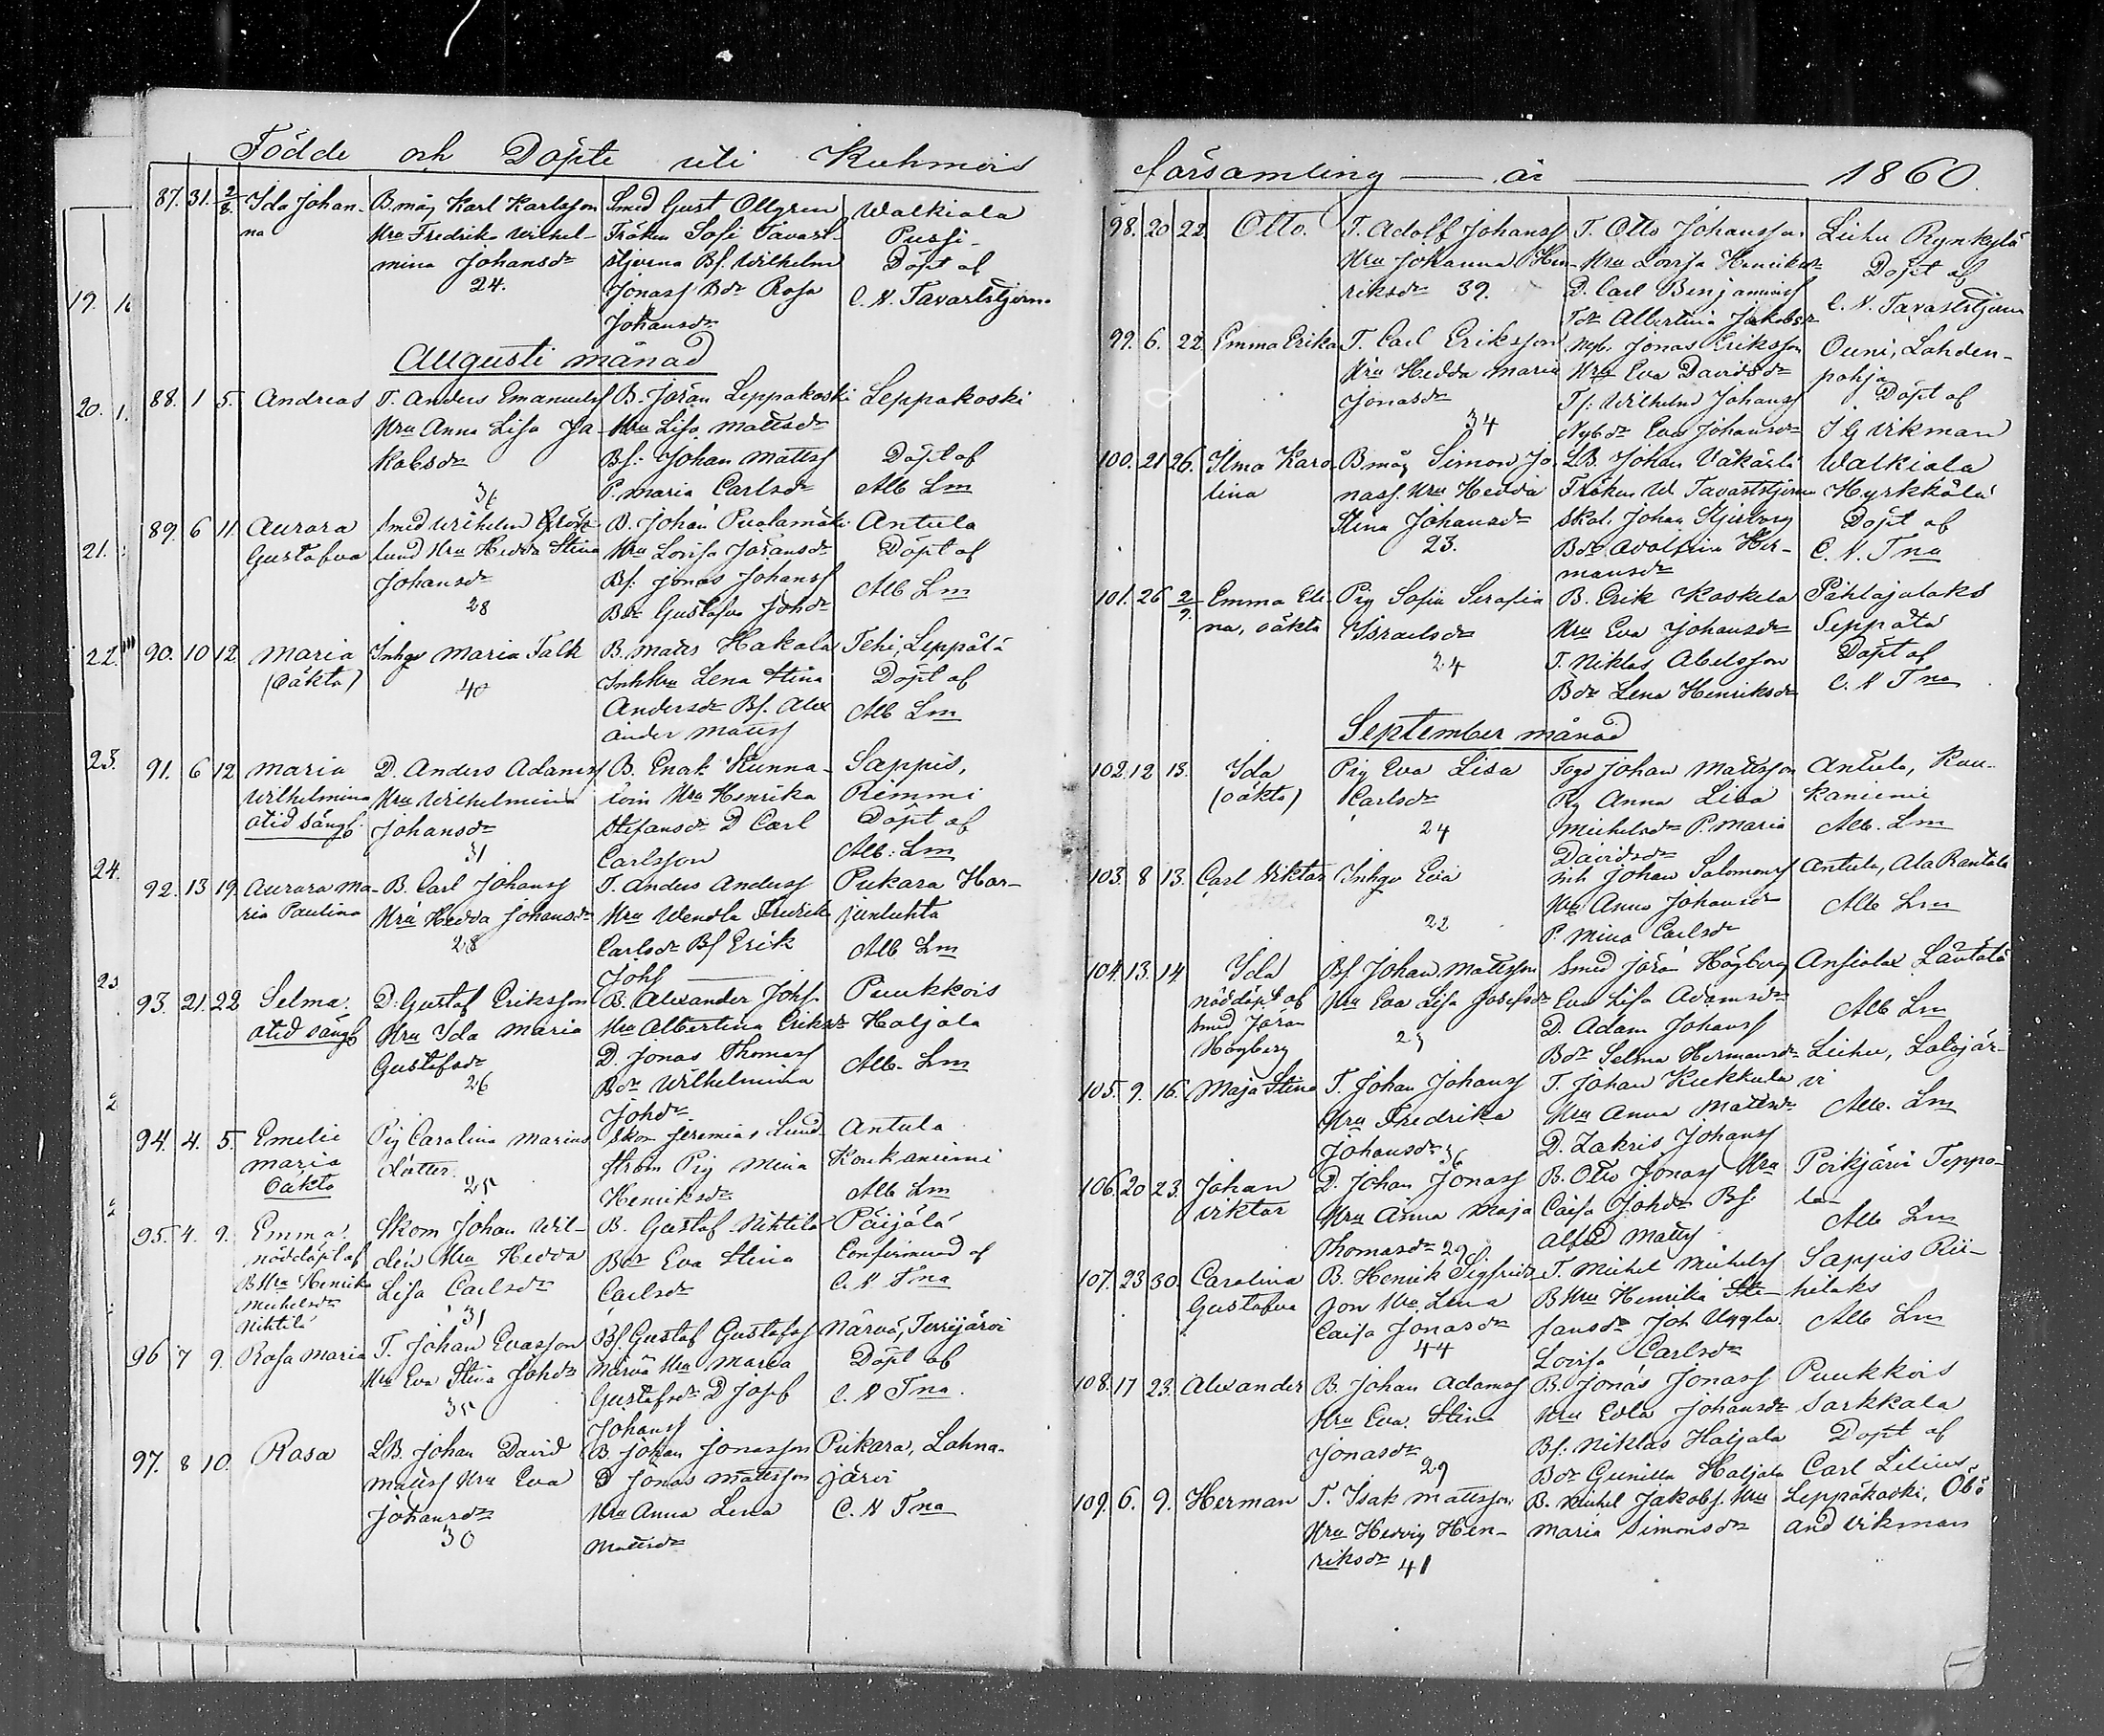 Födde och Döpte uti Kuhmois
87. 31. 2/8. Ida Johan- B.måg Karl Karlsson Smed Gust Ollgren Walkiala
na Hru Fredrik Wilhel- Fröken Sofi Tavast- Pussi-
mina Johansdr stjerna Bs. Wilhelm Döpt af
24. Jonass Bdr Rosa C. N. Tavaststjerna
Johansdr
Augusti månad
88. 1 5. Andreas T. Anders Emanuels B. Jöran Leppäkoski Leppäkoski
Hru Anna Lisa Ja- Hru Lisa Mattsdr
kobsdr Bs: Johan Mattss Döpt af
P. Maria Carlsdr Alb Lm
89. 6 11. Aurora Smed Wilhelm B. Johan Puolamäki Antula
Gustafva lund Hru Hedda Stina Hru Lovisa Jöransdr Döpt af
Johansdr Bs: Jonas Johanss Alb Lm
28 Bdr Gustafva Johdr
90. 10 12. Maria Inhgs Maria Falk B. Matts Hakala Tehi, Leppälä
(Oäkta) 40 Inh Hru Lena Stina Döpt af
Andersdr Bs. Alex Alb Lm
ander Mattss
91. 6 12 Maria D. Anders Adamss B. Enok Kunna- Sappis,
Wilhelmina Hru Wilhelmina loin Hru Henrika Remmi
otid sängl. Johansdr Stefansdr D Carl Döpt af
31 Carlsson Alb: Lm
92. 13 19. Aurora Ma- B. Carl Johanss T. Anders Anderss Pukara Har-
ria Paulina Hru Hedda Johansdr Hru Wendla Fredrik junluhta
28 Carlsdr Bs Erik Alb Lm
Johs
93. 21. 22 Selma. D: Gustaf Eriksson B. Alexander Johs. Puukkois
otid sängl Hru Ida Maria Hru Albertina Eriksdr Haljala
Gustafsdr D. Jonas Thomass Alb. Lm
26 Bdr Wilhelmina
Johdr
94. 4. 5. Emelie Pig Carolina Marius Skom Jeremias Lund- Antula
Maria dotter. ström Pig Mina Koukaniemi
Oäkta 25 Henriksdr Alb Lm
95. 4. 9. Emma. Skom Johan Wil- B. Gustaf Niktilä Päijälä
nöddöpt af dén Hru Hedda Bdr Eva Stina Confirmerad af
B Hru Henrika Lisa Carlsdr Carlsdr C. N. Tna
Michelsdr 31
Niktilä
96 7 9. Rosa Maria T. Johan Evasson Bs. Gustaf Gustafss Närvä, Terrijärvi
Hru Eva Stina Johdr Närvä Hru Maria Döpt af
35 Gustafsdr D Josef C. N Tna.
Johanss
97. 8 10. Rosa LB. Johan David B. Johan Jonasson Pukara, Lahna-
Mattss Hru Eva D Jonas Mattsson järvi
Johansdr Hru Anna Lena C. N Tna
30 Mattsdr
19. 16
20. 1.
21.
22.
23.
24.
25
församling — år — 1860.
98. 20 22. Otto. T. Adolf Johanss T. Otto Johansson Liehu Rynkylä
Hru Johanna Hen- Hru Lovisa Henriksdr Döpt af
riksdr 39. D. Carl Benjaminss C. N. Tavaststjerna
Tdr Albertina Jakobsdr
99. 6. 22 Emma Erika T. Carl Eriksson Nyb. Jonas Eriksson Ouni, Lahden-
Hru Hedda Maria Hru Eva Davidsdr pohja
Jonasdr Ts: Wilhelm Johanss Döpt af
34 Nybdr Eva Johansdr I G Wikman
100. 21 26. Ilma Karo- B måg Simon Jo- LB. Johan Väkärlä Walkiala
lina nass. Hru Hedda Fröken W Tavaststjerna Hyrkkälä
Stina Johansdr Skol. Johan Döpt af
23. Bdr Adolfina Her- C. N. Tna
mansdr
101. 26 2/9. Emma Eli- Pig Sofia Serafia B. Erik Koskela Pihlajalaks
na, oäkta Israelsdr Hru Eva Johansdr Seppälä
24 T. Niklas Abelsson Döpt af
Bdr Lena Henriksdr C. N Tna
September månad
102. 12 13. Ida Pig Eva Lisa Fogd Johan Mattsson Antula, Kou-
(oäkta) Karlsdr Pig Anna Lisa kaniemi
24 Michelsdr P. Maria Alb. Lm
Davidsdr
103. 8 13. Carl Viktor Inhgs Eva Inh Johan Salomonss Antula, Ala Rantala
22 Anna Johansdr Alb Lm
P. Mina Carlsdr
104. 13. 14. Ida Bs Johan Mattsson Smed Jöran Högberg Ansiolax Lautala
nöddöpt af Hru Eva Lisa Josefsdr Eva Lisa Adamsdr Alb Lm
Smed Jöran D. Adam Johanss
Högberg Bdr Selma Hermansdr
105. 9. 16. Maja Stina T. Johan Johanss T. Johan Kukkula Liehu, Salojär-
Hru Fredrika Hru Anna Mattsdr vi
Johansdr 36 D. Zakris Johanss Alb. Lm
106. 20 23. Johan D. Johan Jonass B. Otto Jonass Hru Poikjärvi Teppo-
Viktor Hru Anna Maja Caisa Johdr Bs. la
Thomasdr 29 Alfred Mattss Alb Lm
107. 23 30. Carolina B. Henrik Sigfrids- T. Michel Michelss Sappis Rii-
Gustafva son Hru Lena B Hru Henrika Ste- hilaks
Caisa Jonasdr fansdr Joh Uggla Alb Lm
44 Lovisa Carlsdr
108. 17 23. Alexander B. Johan Adamss B. Jonas Jonass Puukkois
Hru Eva Stina Hru Edla Johansdr Sarkkala
Jonasdr Bs. Niklas Haljala Döpt af
29 Bdr Gunilla Haljala Carl Lilius.
109. 6. 9. Herman T. Isak Mattsson B. Michel Jakobs. Hru Leppäkoski,
Hru Hedvig Hen- Maria Simonsdr And Wikman
riksdr 41